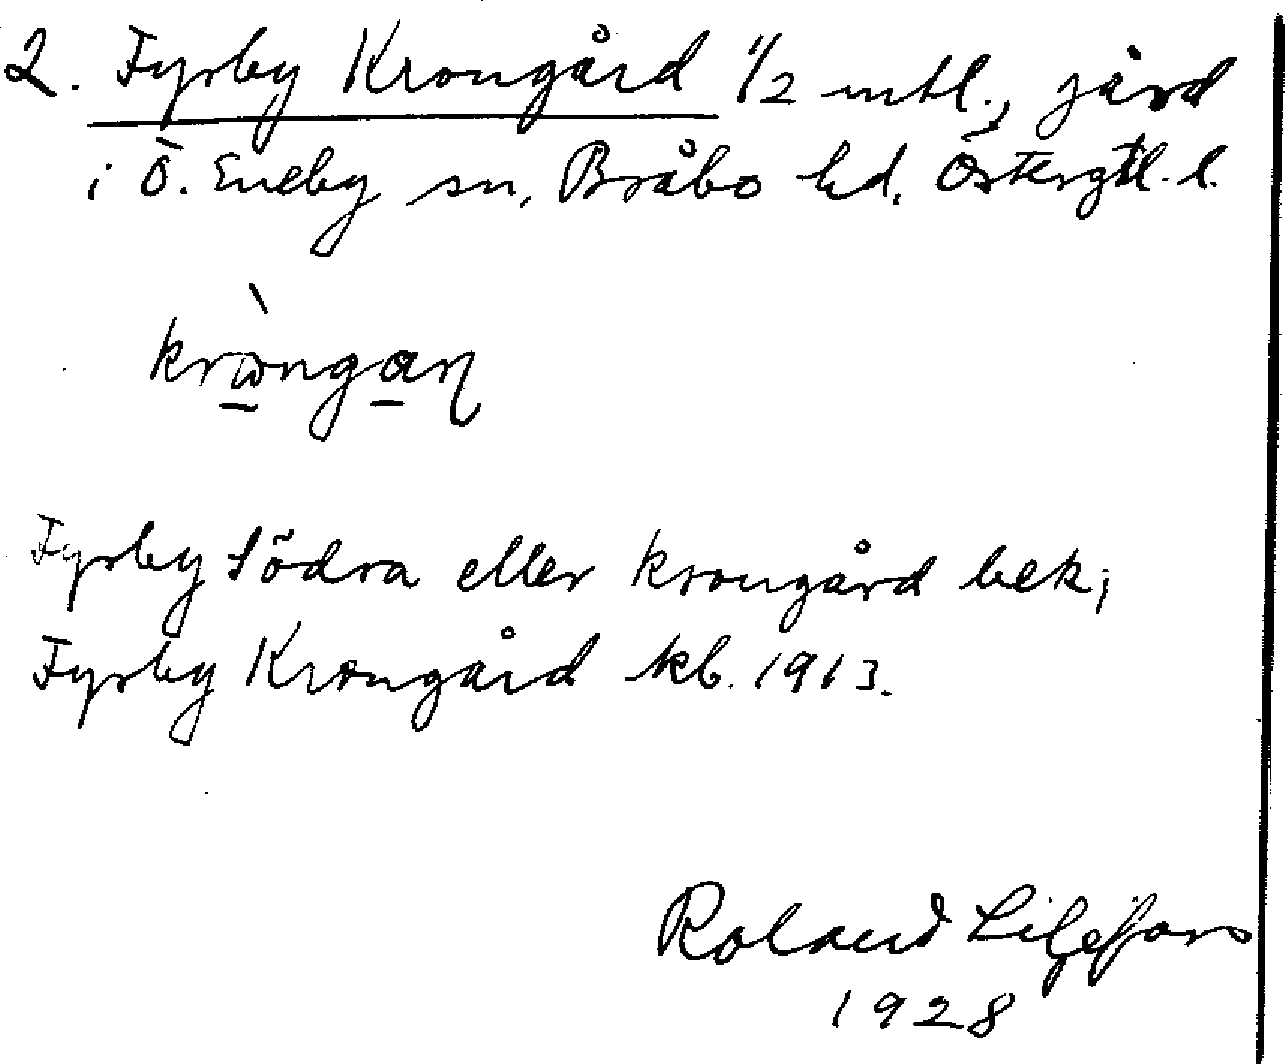 2. Fyrby Krongård 1/2 mtl., gård
i Ö. Eneby sn, Bråbo hd, Östergtl. l.
krωngaɳ
Fyrby södra eller krongård bek;
Fyrby Krongård kb. 1913.
Roland Liljefors
1928